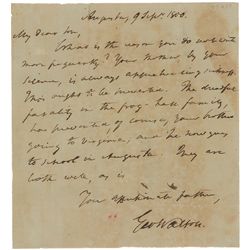 Augusta, 9 Sept. 1803.
My dear son,
What is the reason you do not write
more frequently? Your Mother, by your
silence, is always apprehending mishap.
This ought to be prevented. The dreadful
fatality in the family,
has prevented, of course, your brothers
going to Virginia, and he now goes
to school in Augusta. They are
both well, as is
Your affectionate father,
Geo Walton.